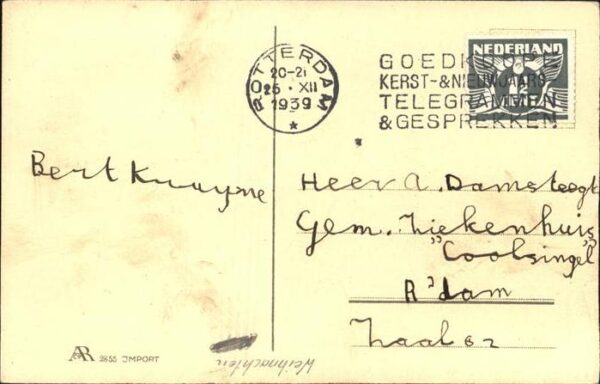 NEDERLAND
ROTTERDAM
20-21
25 · XII
1939
GOEDKOPE
KERST-&NIEUWJAARS
TELEGRAMMEN
&GESPREKKEN
Bert
Heer A. Damsteegt
Gem. Ziekenhuis
"Coolsingel"
R'dam
Zaal 62
AR 2855 IMPORT
Weihnachten